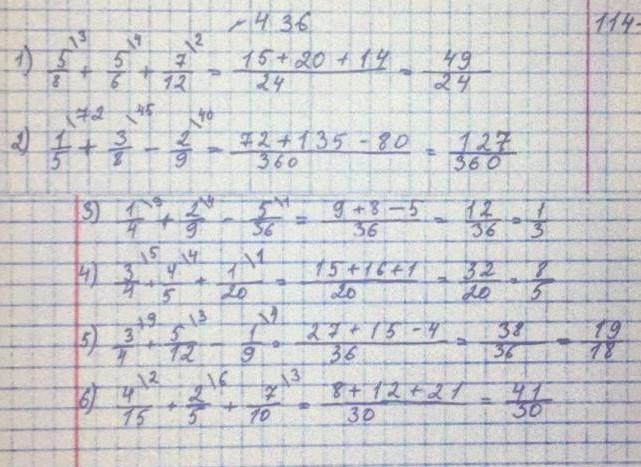 №436
114-
1) 5/8\3 + 5/6\4 + 7/12\2 = (15+20+14)/24 = 49/24
2) 1/5\72 + 3/8\45 - 2/9\40 = (72+135-80)/360 = 127/360
3) 1/4\9 + 2/9\4 - 5/36\1 = (9+8-5)/36 = 12/36 = 1/3
4) 3/4\5 + 4/5\4 + 1/20\1 = (15+16+1)/20 = 32/20 = 8/5
5) 3/4\9 + 5/12\3 - 1/9\4 = (27+15-4)/36 = 38/36 = 19/18
6) 4/15\2 + 2/5\6 + 7/10\3 = (8+12+21)/30 = 41/30